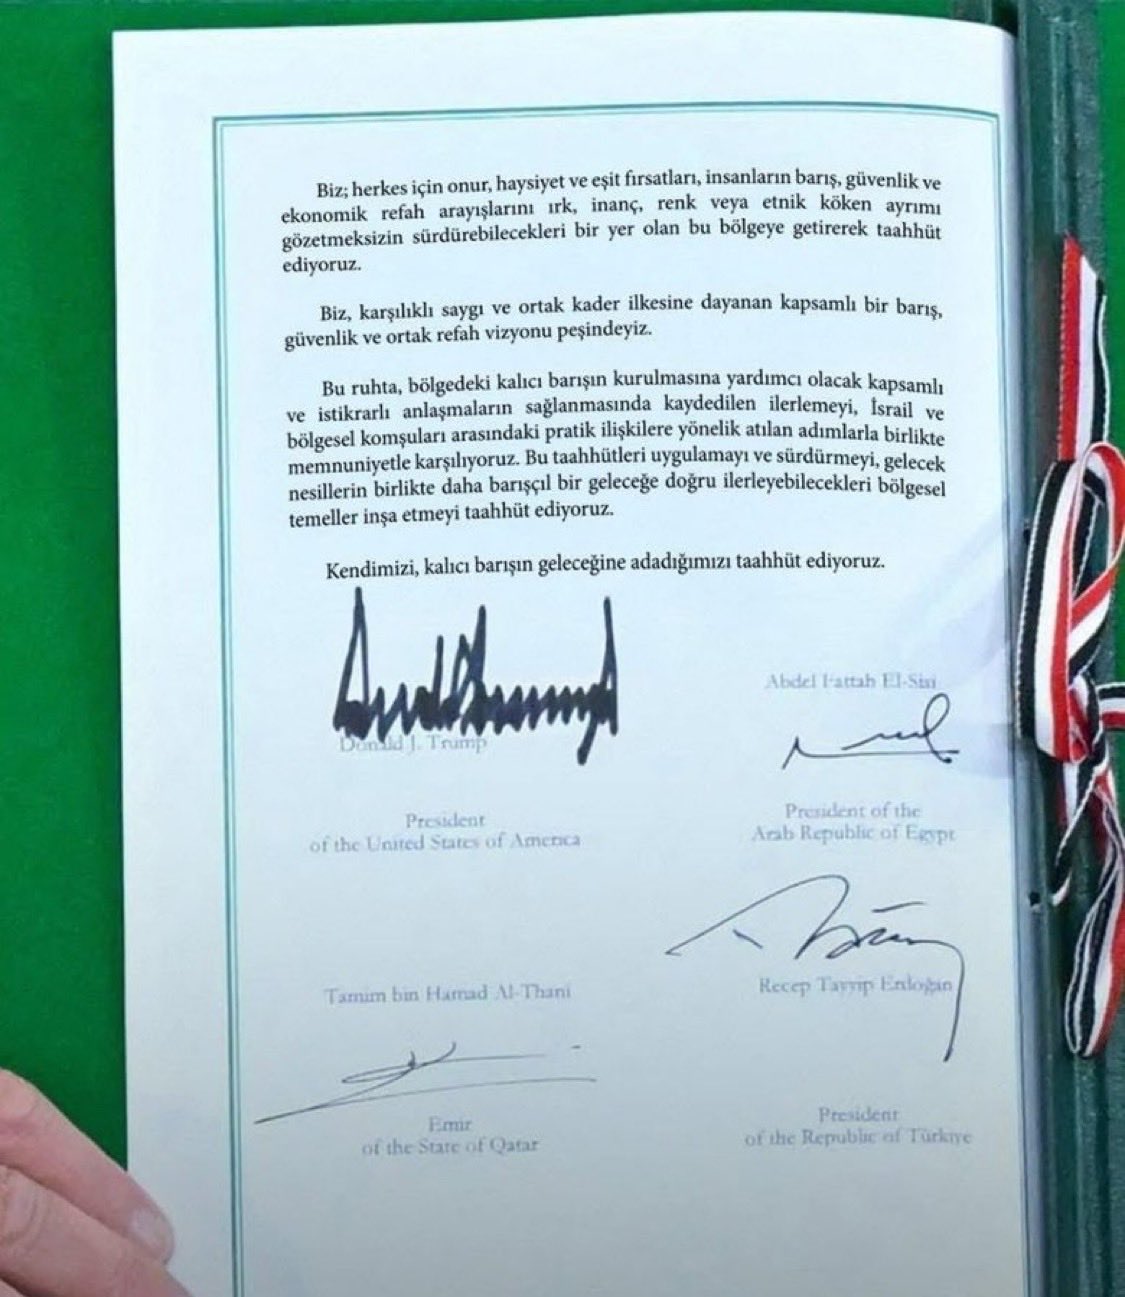 Biz; herkes için onur, haysiyet ve eşit fırsatları, insanların barış, güvenlik ve
ekonomik refah arayışlarını ırk, inanç, renk veya etnik köken ayrımı
gözetmeksizin sürdürebilecekleri bir yer olan bu bölgeye getirerek taahhüt
ediyoruz.
Biz, karşılıklı saygı ve ortak kader ilkesine dayanan kapsamlı bir barış,
güvenlik ve ortak refah vizyonu peşindeyiz.
Bu ruhta, bölgedeki kalıcı barışın kurulmasına yardımcı olacak kapsamlı
ve istikrarlı anlaşmaların sağlanmasında kaydedilen ilerlemeyi, İsrail ve
bölgesel komşuları arasındaki pratik ilişkilere yönelik atılan adımlarla birlikte
memnuniyetle karşılıyoruz. Bu taahhütleri uygulamayı ve sürdürmeyi, gelecek
nesillerin birlikte daha barışçıl bir geleceğe doğru ilerleyebilecekleri bölgesel
temeller inşa etmeyi taahhüt ediyoruz.
Kendimizi, kalıcı barışın geleceğine adadığımızı taahhüt ediyoruz.
Donald J. Trump
President
of the United States of America
Abdel Fattah El-Sisi
President of the
Arab Republic of Egypt
Tamim bin Hamad Al-Thani
Emir
of the State of Qatar
Recep Tayyip Erdoğan
President
of the Republic of Türkiye